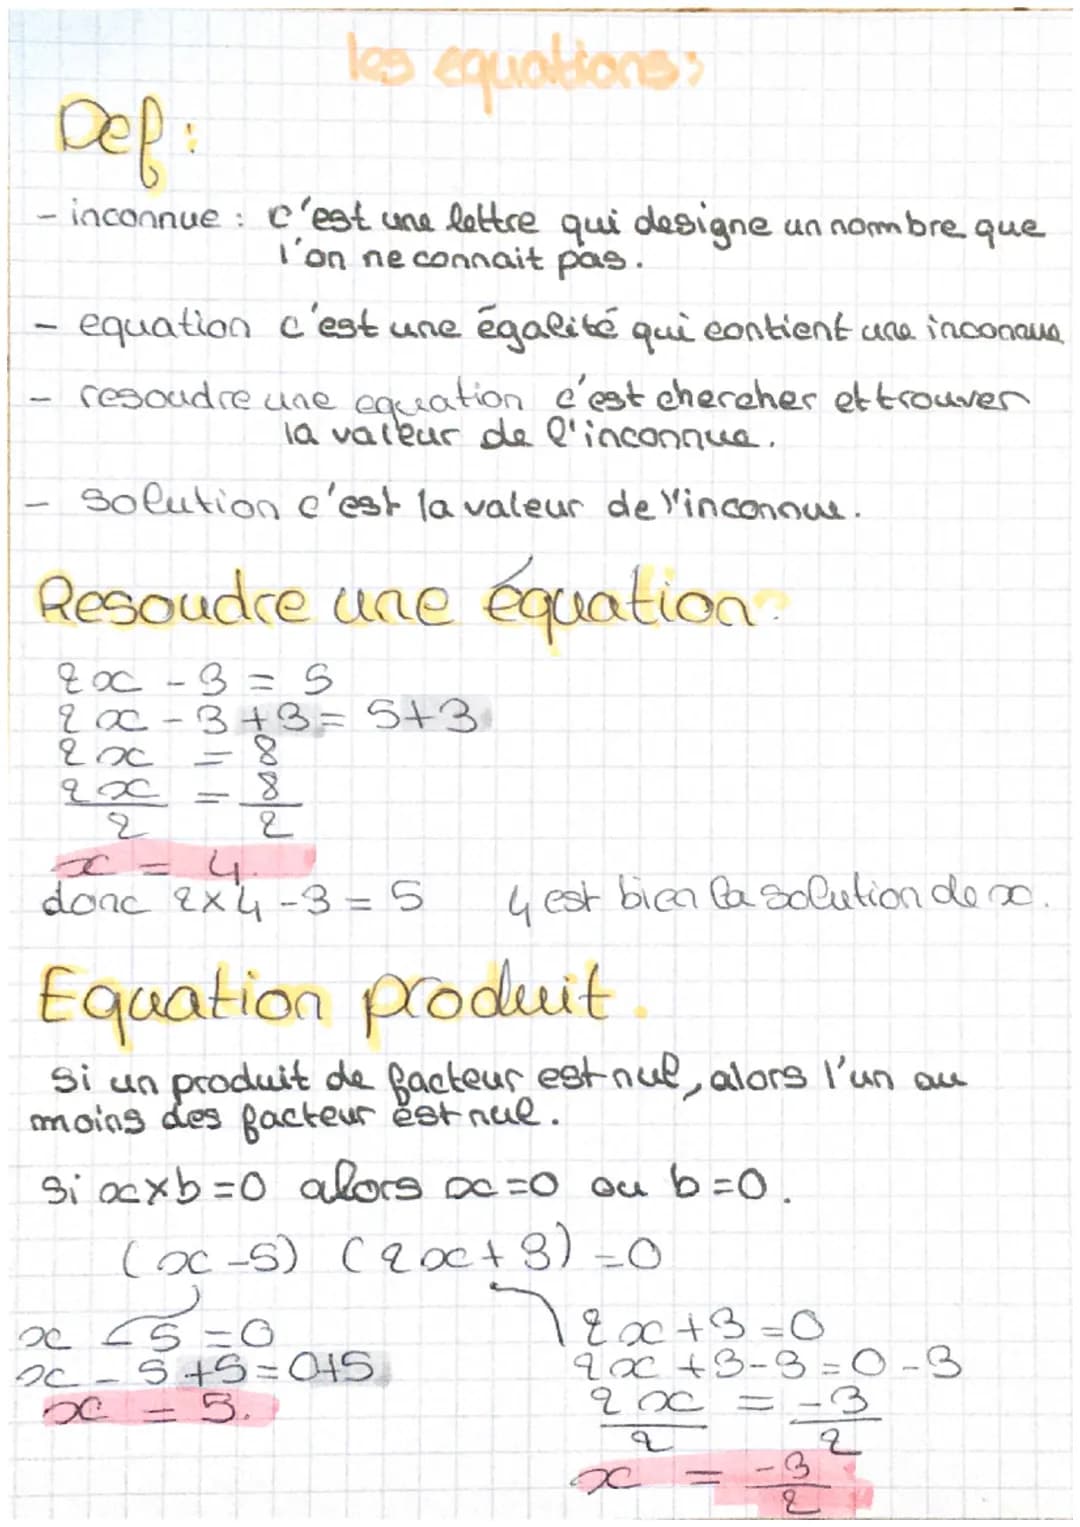 les equations:
Def:
- inconnue : c'est une lettre qui designe un nombre que
l'on ne connait pas.
- equation c'est une égalité qui contient une inconnue
- resoudre une equation c'est chercher et trouver
la valeur de l'inconnue.
- solution c'est la valeur de l'inconnue.
Resoudre une équation:
2x - 3 = 5
2x - 3 + 3 = 5+3
2x = 8
2x/2 = 8/2
x = 4.
donc 2×4-3 = 5 4 est bien la solution de x.
Equation produit.
si un produit de facteur est nul, alors l'un au
moins des facteur est nul.
si x×b=0 alors x=0 ou b=0.
(x-5) (2x+3) =0
x - 5 = 0
x - 5 +5 = 0+5
x = 5.
2x+3=0
2x+3-3=0-3
2x/2 = -3/2
x = -3/2